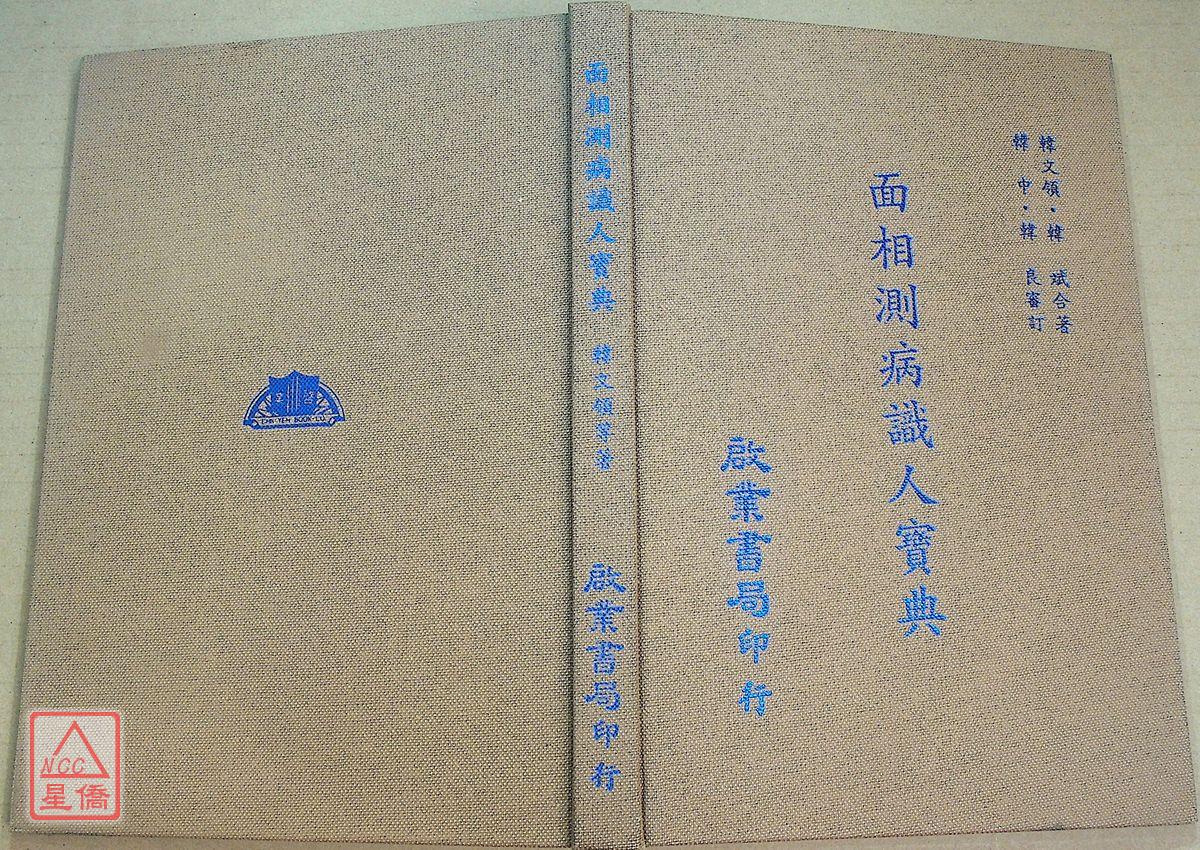 韓文領·韓 斌合著
韓 中·韓 良審訂
面相測病識人寶典
啟業書局印行
面相測病識人寶典 韓文領等著 啟業書局印行
CHI-YEH BOOK CO.
NCC
星僑